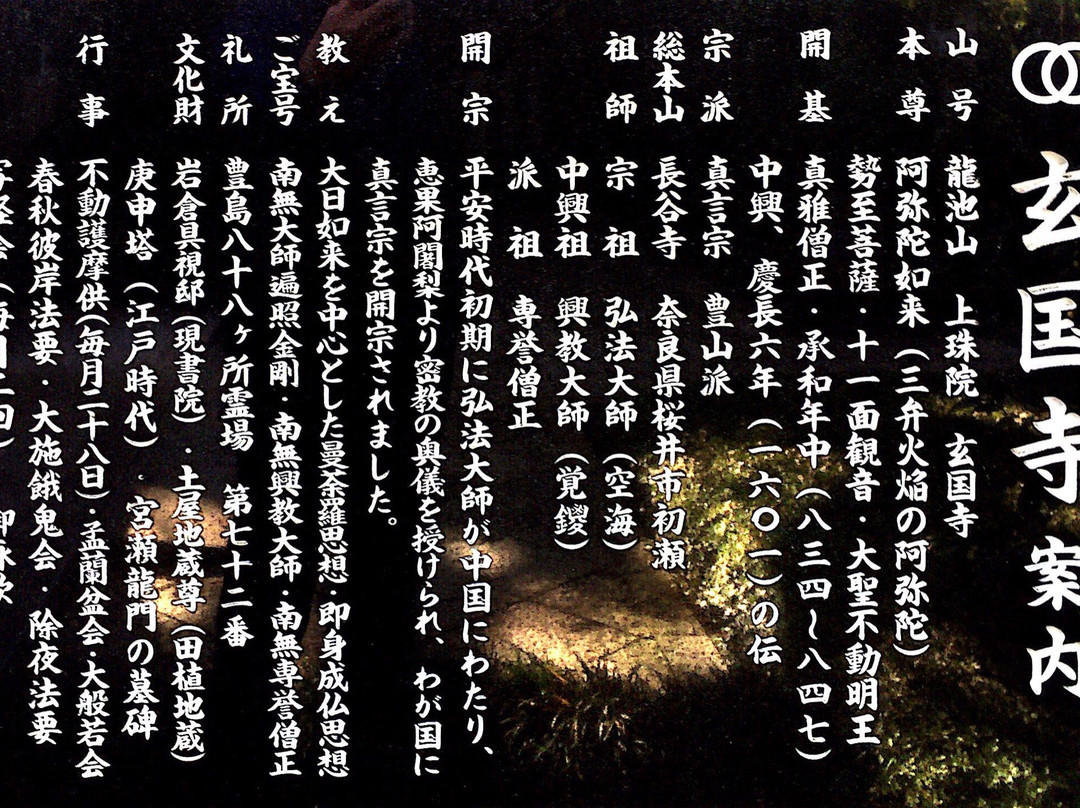 玄国寺案内
山号 龍池山 上珠院 玄国寺
本尊 阿弥陀如来（三弁火焔の阿弥陀）
勢至菩薩・十一面観音・大聖不動明王
開基 真雅僧正・承和年中（八三四～八四七）
中興、慶長六年（一六〇一）の伝
宗派 真言宗 豊山派
総本山 長谷寺 奈良県桜井市初瀬
祖師 宗祖 弘法大師（空海）
中興祖 興教大師（覚鑁）
派祖 専誉僧正
開宗 平安時代初期に弘法大師が中国にわたり、
恵果阿闍梨より密教の奥儀を授けられ、わが国に
真言宗を開宗されました。
教え 大日如来を中心とした曼荼羅思想・即身成仏思想
ご宝号 南無大師遍照金剛・南無興教大師・南無専誉僧正
礼所 豊島八十八ヶ所霊場 第七十二番
文化財 岩倉具視邸（現書院）・土屋地蔵尊（田植地蔵）
庚申塔（江戸時代）・宮瀬龍門の墓碑
行事 不動護摩供（毎月二十八日）・盂蘭盆会・大般若会
春秋彼岸法要・大施餓鬼会・除夜法要